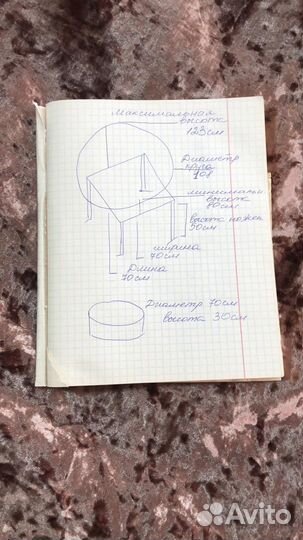 Максимальная
высота
123см
Диаметр
круга
108
минимальн
высота
80см
высота ножек
50см
ширина
70см
Длина
70см
Диаметр 70см
высота 30см
Avito